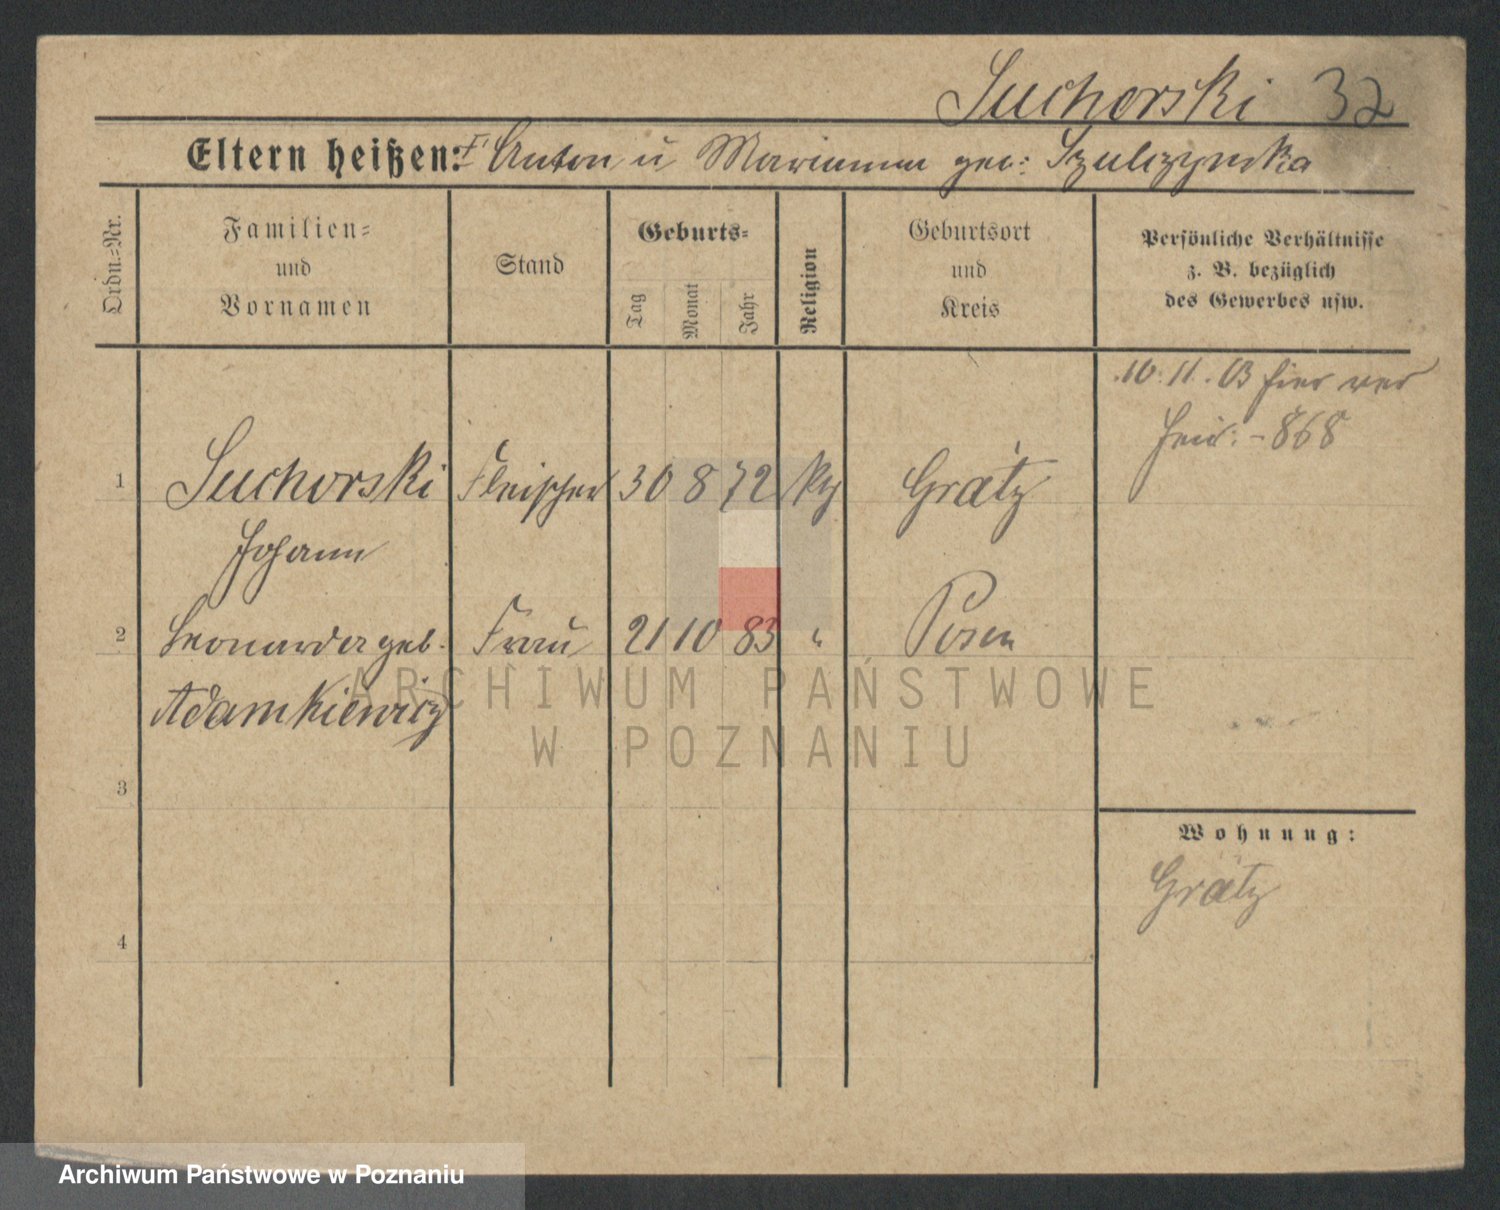 Suchorski 32
Eltern heißen: Anton u Marianna geb: Szulczynska
Ordn.=Nr.
Familien=
und
Vornamen
Stand
Geburts=
Tag
Monat
Jahr
Religion
Geburtsort
und
Kreis
Persönliche Verhältnisse
z. B. bezüglich
des Gewerbes usw.
10. 11. 03 hier ver
heir. - 868
1 Suchorski Fleischer 30 8 72 Grätz
Johann
2 Leonarda geb. Frau 21 10 83 " Posen
Adamkiewicz
3
4
Wohnung:
Grätz
ARCHIWUM PAŃSTWOWE
W POZNANIU
Archiwum Państwowe w Poznaniu